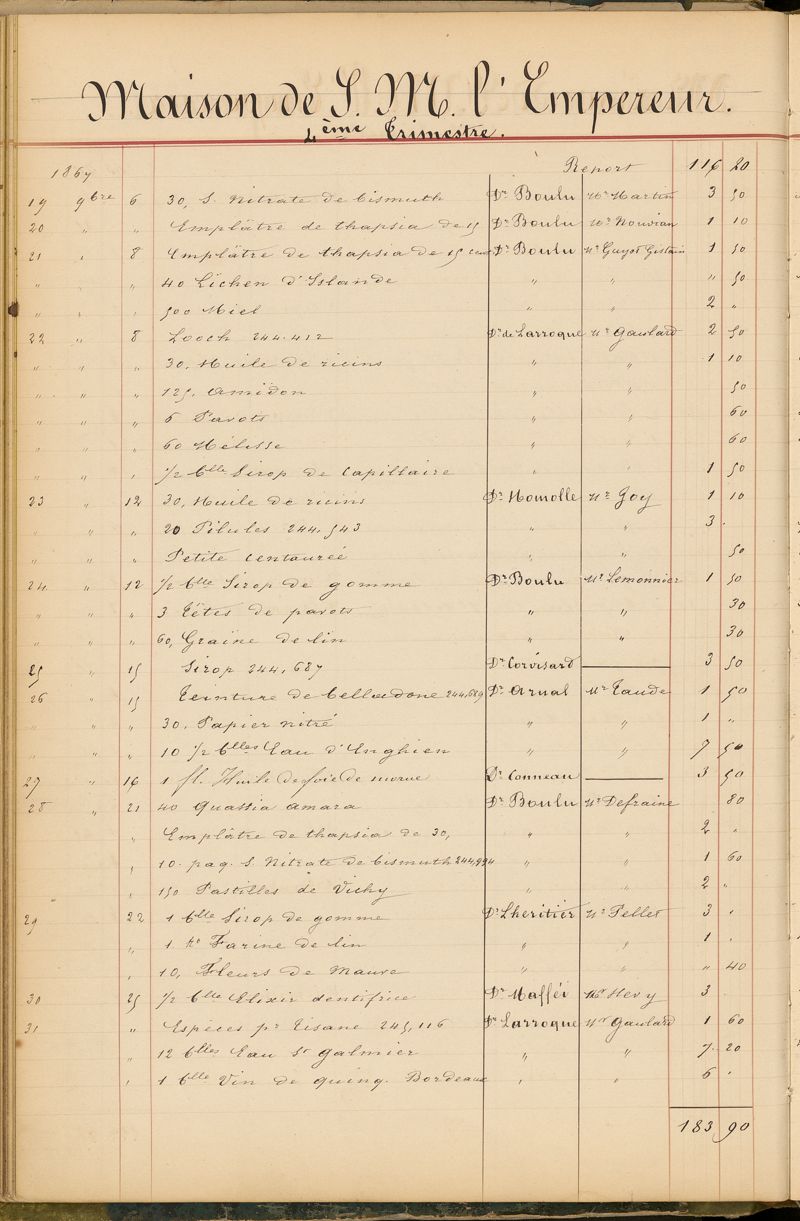 Maison de S. M. l'Empereur.
4ème Trimestre.
1867 Report 116 20
19 9bre 6 30, S. Nitrate de bismuth Dr Boulu Mr Martin 3 50
20 " " Emplâtre de thapsia de 15 Dr Boulu Mr Nouvian 1 10
21 " 8 Emplâtre de thapsia de 15 cent Dr Boulu Mr Guyot Gistain 1 50
" " " 40 Lichen d'Islande " " " 50
" " " 500 Miel " " 2 "
22 " 8 Looch 244.412 Dr de Larroque Mr Gaulard 2 50
" " " 30, Huile de ricins " " 1 10
" " " 125, Amidon " " 50
" " " 6 Pavots " " 60
" " " 60 Mélisse " " 60
" " " 1/2 blle Sirop de Capillaire " " 1 50
23 " 12 30, Huile de ricins Dr Homolle Mr Goy 1 10
" " " 20 Pilules 244,543 " " 3 "
" " " Petite Centaurée " " 50
24 " 12 1/2 blle Sirop de gomme Dr Boulu Mr Lemonnier 1 50
" " " 3 Têtes de pavots " " 30
" " " 60, Graine de lin " " 30
25 " 15 Sirop 244,687 Dr Corvisard — 3 50
26 " 15 Teinture de belladone 244,689 Dr Arnal Mr Taude 1 50
" " " 30. Papier nitré " " 1 "
" " " 10 1/2 blles Eau d'Enghien " " 7 50
27 " 16 1 fl. Huile de foie de morue Dr Conneau — 3 50
28 " 21 40 Quassia amara Dr Boulu Mr Defraine 80
" Emplâtre de thapsia de 30, " " 2 "
" 10. paq. S. Nitrate de bismuth 244,994 " " 1 60
" 150 Pastilles de Vichy " " 2 "
29 22 1 blle Sirop de gomme Dr Lheritier Mr Pellet 3 "
" 1 ko Farine de lin " " 1 "
" 10, Fleurs de Mauve " " " 40
30 25 1/2 blle Elixir dentifrice Dr Maffei Mr Hevy 3
31 " Espèces pr Tisane 245,116 Dr Larroque Mr Gaulard 1 60
" 12 blles Eau St Galmier " " 7 20
" 1 blle Vin de quinq. Bordeaux " " 6 "
183 90